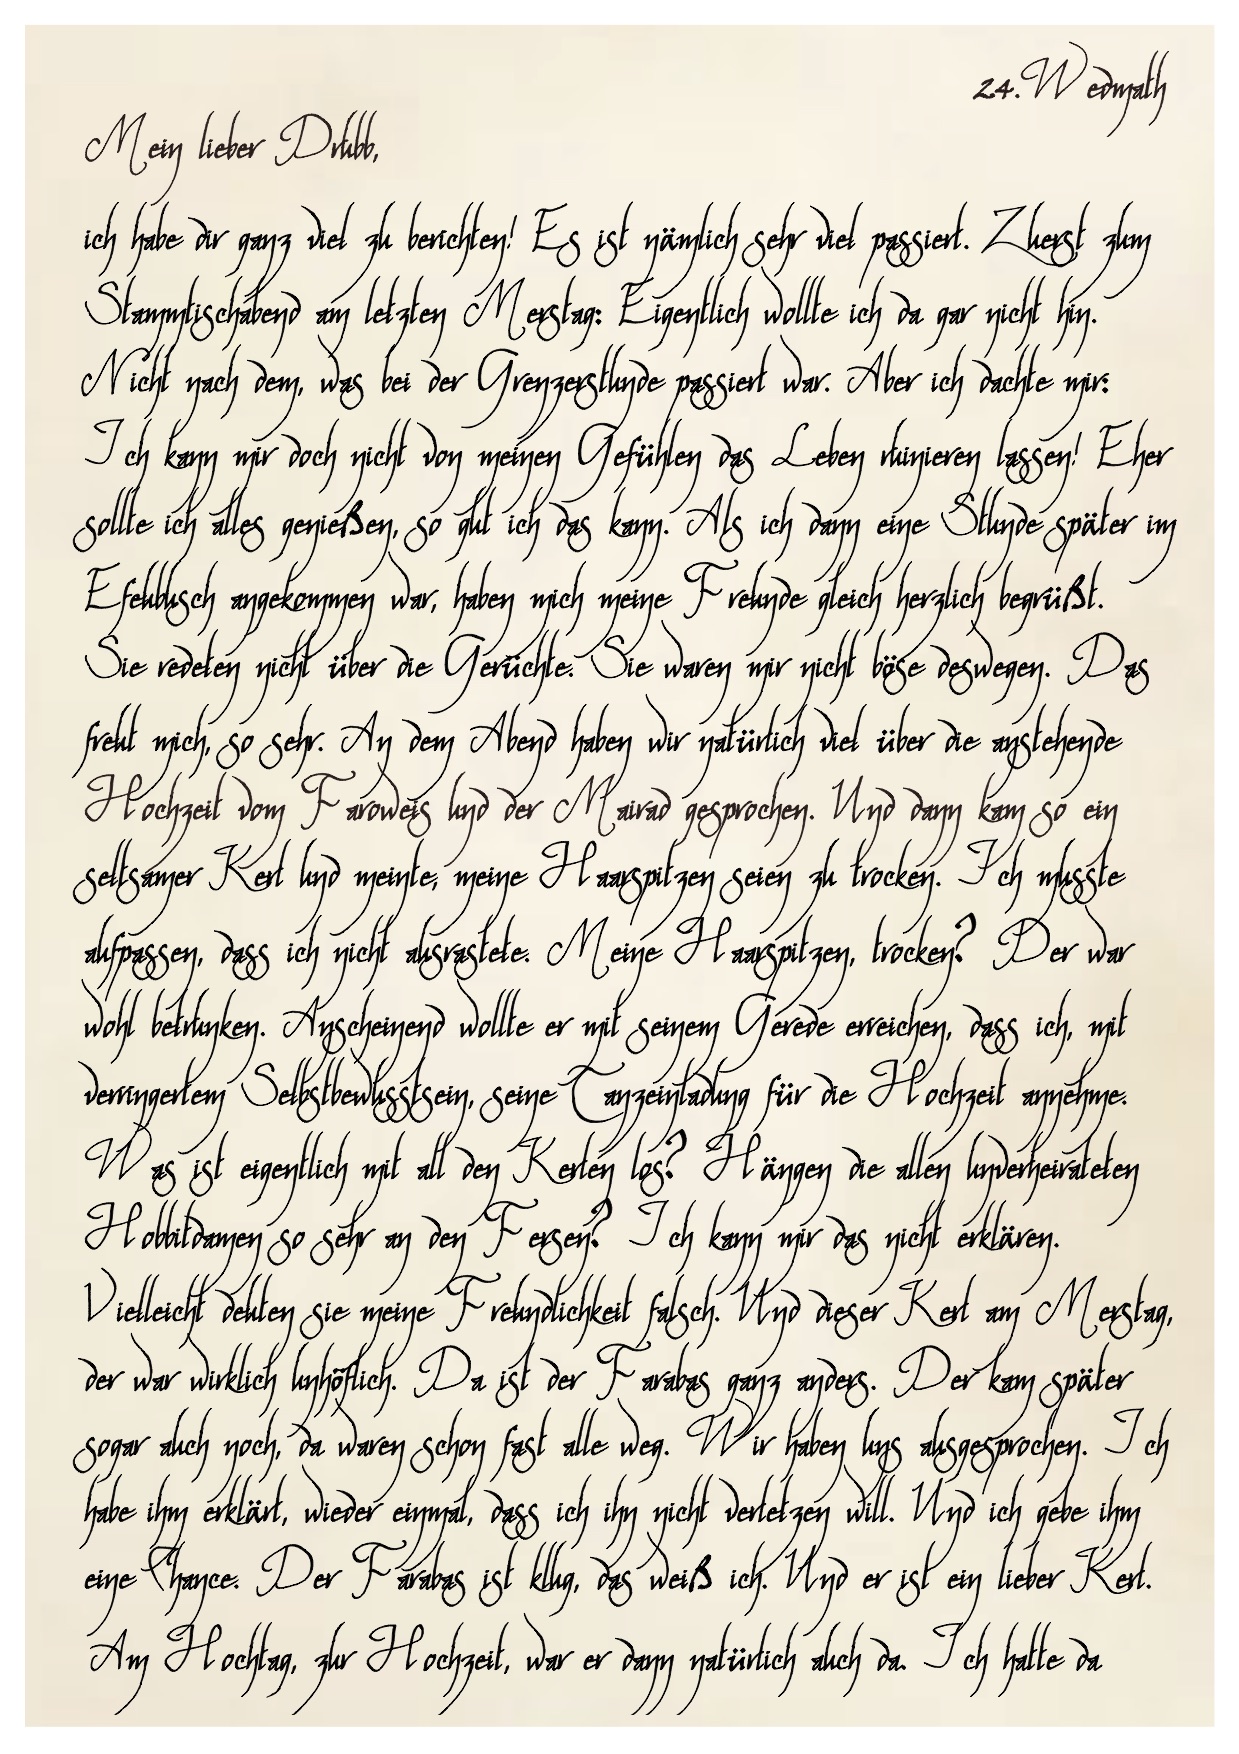 24. Wedmath
Mein lieber Drubb,
ich habe dir ganz viel zu berichten! Es ist nämlich sehr viel passiert. Zuerst zum
Stammtischabend am letzten Merstag: Eigentlich wollte ich da gar nicht hin.
Nicht nach dem, was bei der Grenzerstunde passiert war. Aber ich dachte mir:
Ich kann mir doch nicht von meinen Gefühlen das Leben ruinieren lassen! Eher
sollte ich alles genießen, so gut ich das kann. Als ich dann eine Stunde später im
Efeubusch angekommen war, haben mich meine Freunde gleich herzlich begrüßt.
Sie redeten nicht über die Gerüchte. Sie waren mir nicht böse deswegen. Das
freut mich, so sehr. An dem Abend haben wir natürlich viel über die anstehende
Hochzeit vom Faroweis und der Mairad gesprochen. Und dann kam so ein
seltsamer Kerl und meinte, meine Haarspitzen seien zu trocken. Ich musste
aufpassen, dass ich nicht ausrastete. Meine Haarspitzen, trocken? Der war
wohl betrunken. Anscheinend wollte er mit seinem Gerede erreichen, dass ich, mit
verringertem Selbstbewusstsein, seine Tanzeinladung für die Hochzeit annehme.
Was ist eigentlich mit all den Kerlen los? Hängen die allen unverheirateten
Hobbitdamen so sehr an den Fersen? Ich kann mir das nicht erklären.
Vielleicht deuten sie meine Freundlichkeit falsch. Und dieser Kerl am Merstag,
der war wirklich unhöflich. Da ist der Farabas ganz anders. Der kam später
sogar auch noch, da waren schon fast alle weg. Wir haben uns ausgesprochen. Ich
habe ihm erklärt, wieder einmal, dass ich ihn nicht verletzen will. Und ich gebe ihm
eine Chance. Der Farabas ist klug, das weiß ich. Und er ist ein lieber Kerl.
Am Hochtag, zur Hochzeit, war er dann natürlich auch da. Ich hatte da